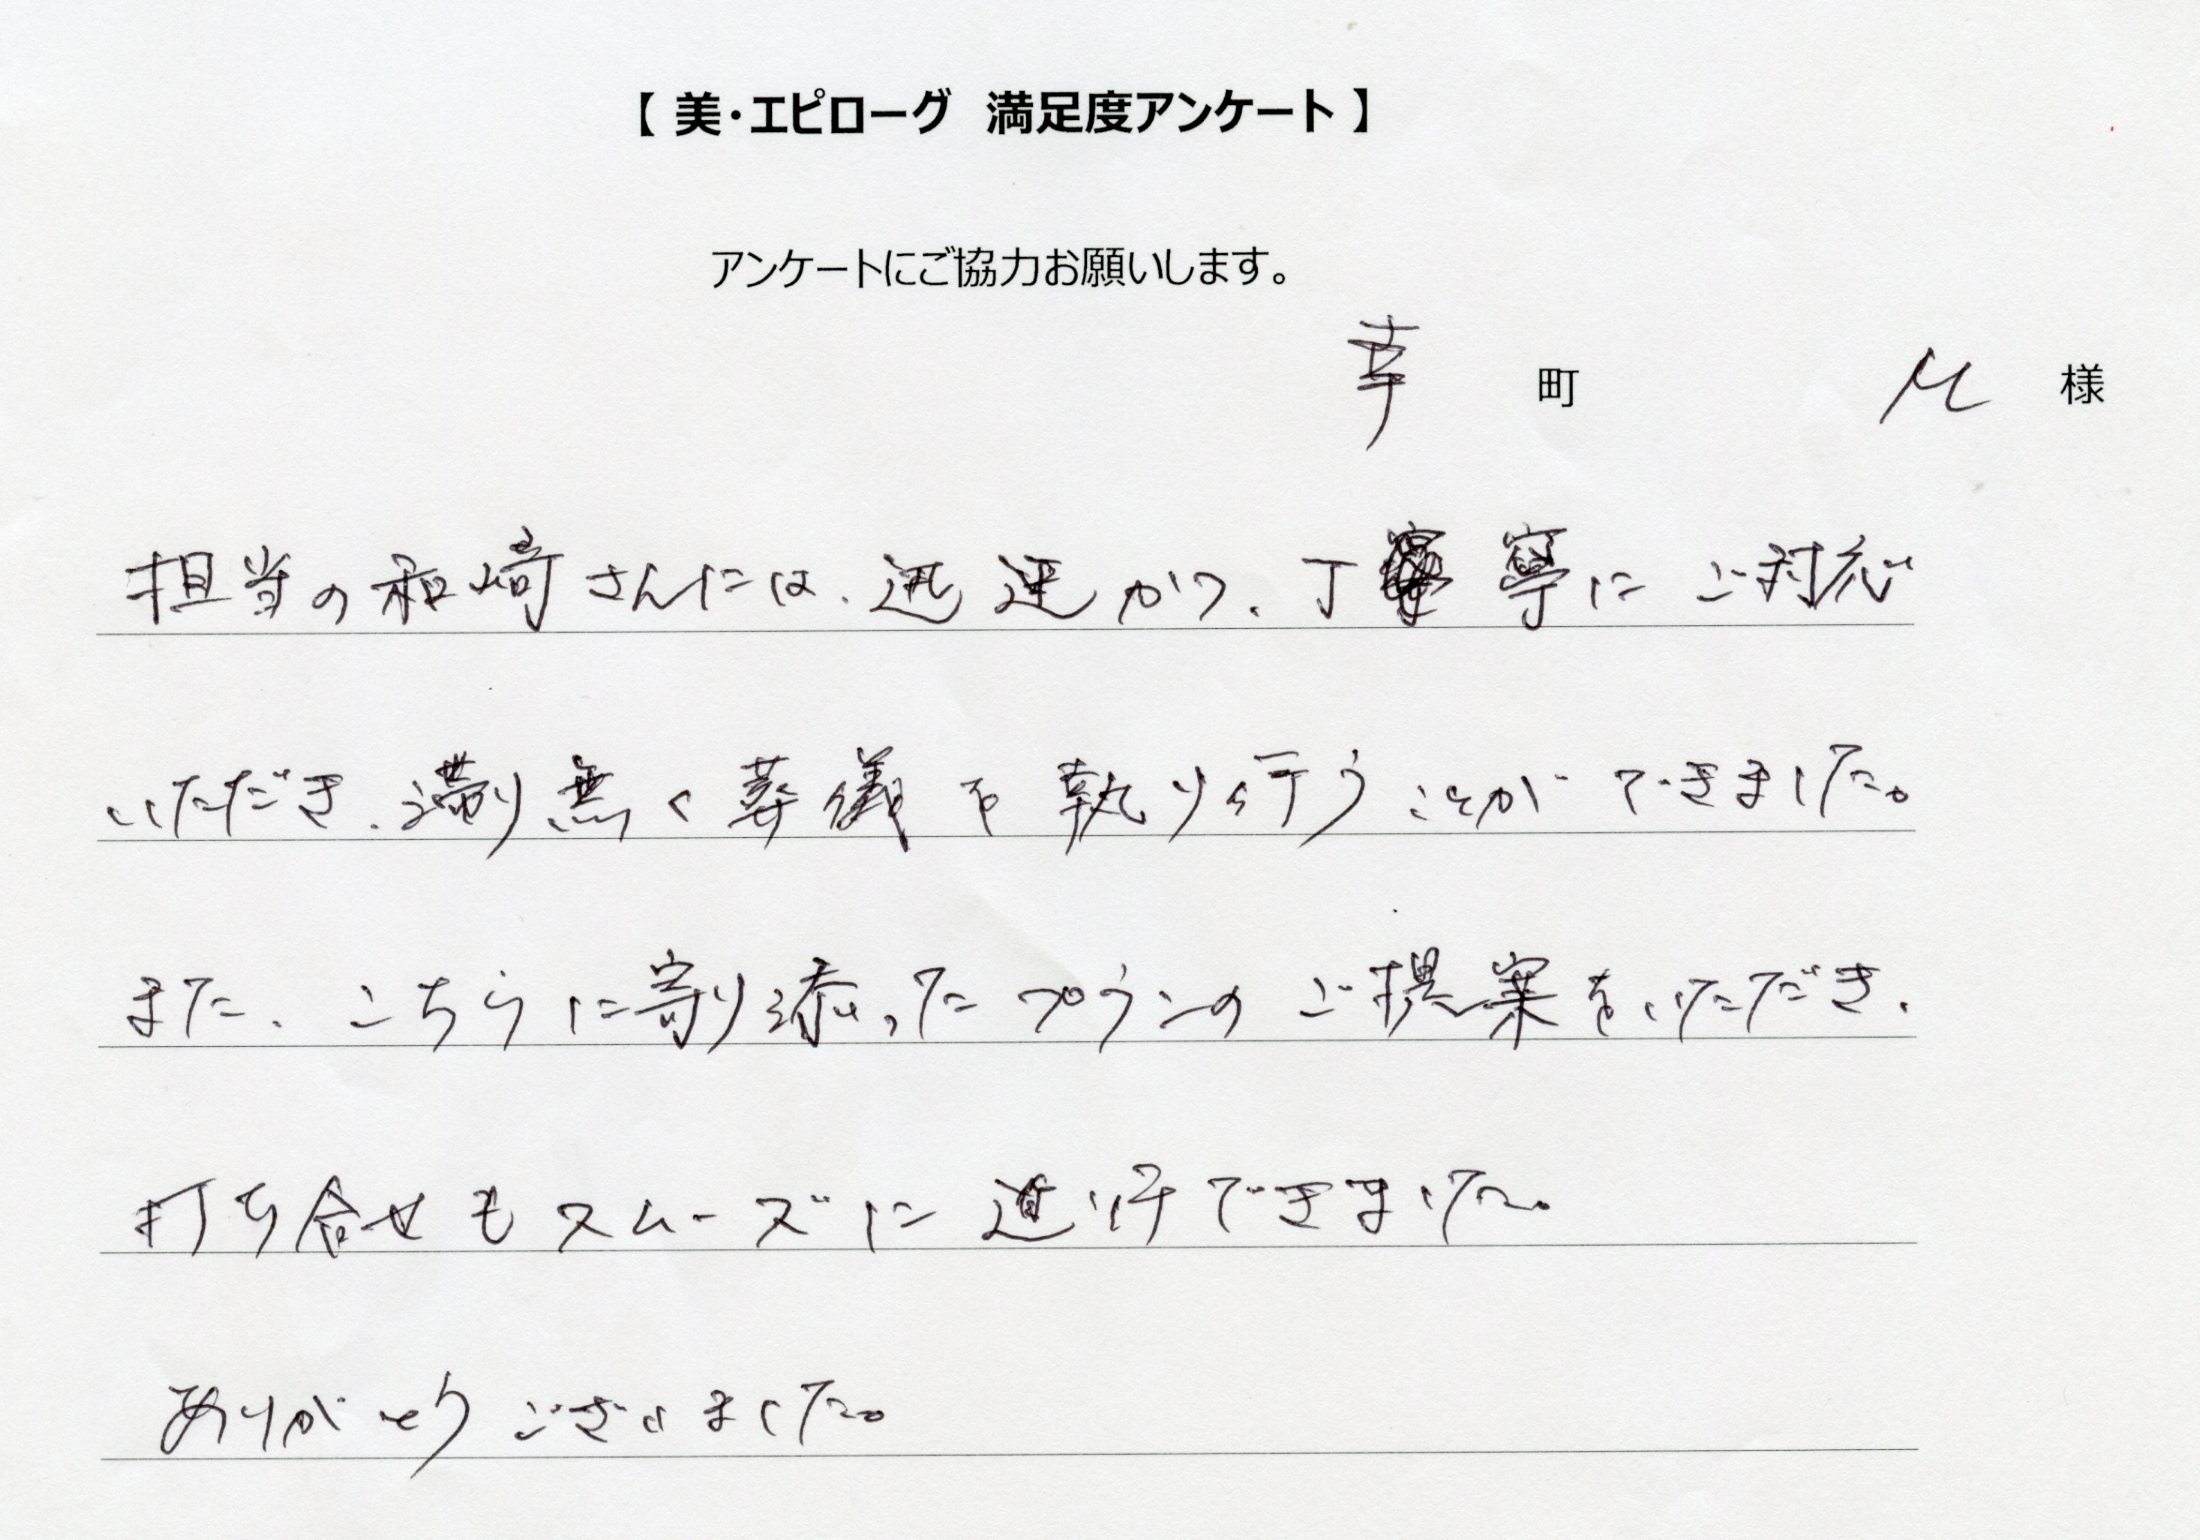 【 美・エピローグ　満足度アンケート 】
アンケートにご協力お願いします。
幸 町 M 様
担当の和崎さんには、迅速かつ、丁寧にご対応
いただき、滞り無く葬儀を執り行うことができました。
また、こちらに寄り添ったプランのご提案をいただき、
打ち合せもスムーズに進行できました。
ありがとうございました。